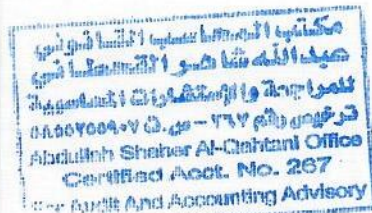 مكتب المحاسب القانوني
عبدالله شاهر القحطاني
للمراجعة والإستشارات المحاسبية
ترخيص رقم ٢٦٧ – س.ت
Abdullah Shaher Al-Qahtani Office
Certified Acct. No. 267
For Audit And Accounting Advisory